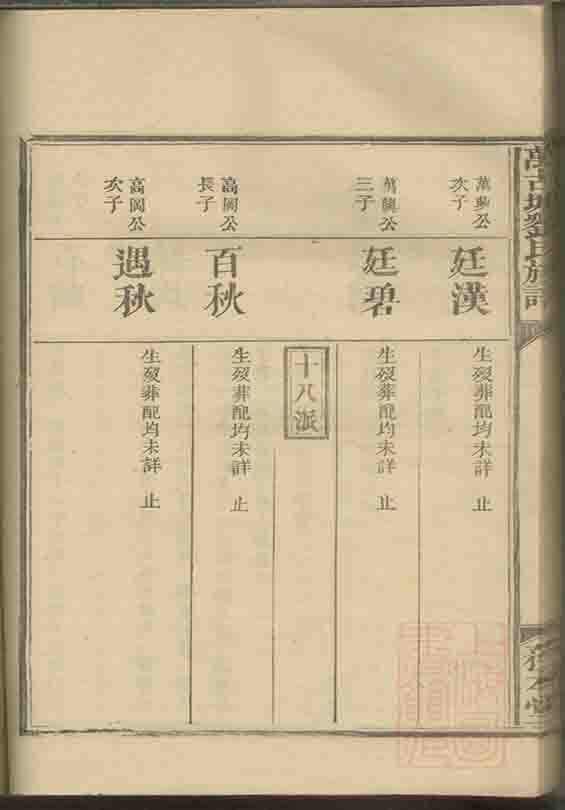 萬興公
次子
廷漢
生歿葬配均未詳 止
萬興公
三子
廷碧
生歿葬配均未詳 止
十八派
高岡公
長子
百秋
生歿葬配均未詳 止
高岡公
次子
遇秋
生歿葬配均未詳 止